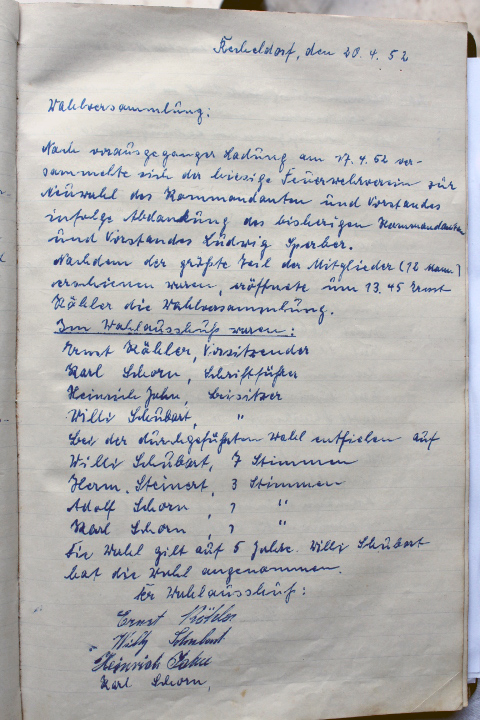 Fecheldorf, den 20.4.52
Wahlversammlung:
Nach vorausgeganger Ladung am 17.4.52 ver-
sammelte sich der hiesige Feuerwehrverein zur
Neuwahl des Kommandanten und Vorstandes
infolge Abdankung des bisherigen Kommandanten
und Vorstandes Ludwig Sperber.
Nachdem der größte Teil der Mitglieder (12 Mann)
erschienen waren, eröffnete um 13.45 Ernst
Köhler die Wahlversammlung.
Im Wahlausschuß waren:
Ernst Köhler, Vorsitzender
Karl Schorn, Schriftführer
Heinrich Jahn, Beisitzer
Willi Schubart, "
Bei der durchgeführten Wahl entfielen auf
Willi Schubart, 7 Stimmen
Herm. Steinert, 3 Stimmen
Adolf Schorn, 1 "
Karl Schorn, 1 "
Die Wahl gilt auf 5 Jahre. Willi Schubart
hat die Wahl angenommen.
Der Wahlausschuß:
Ernst Köhler
Willy Schubart
Heinrich Jahn
Karl Schorn,